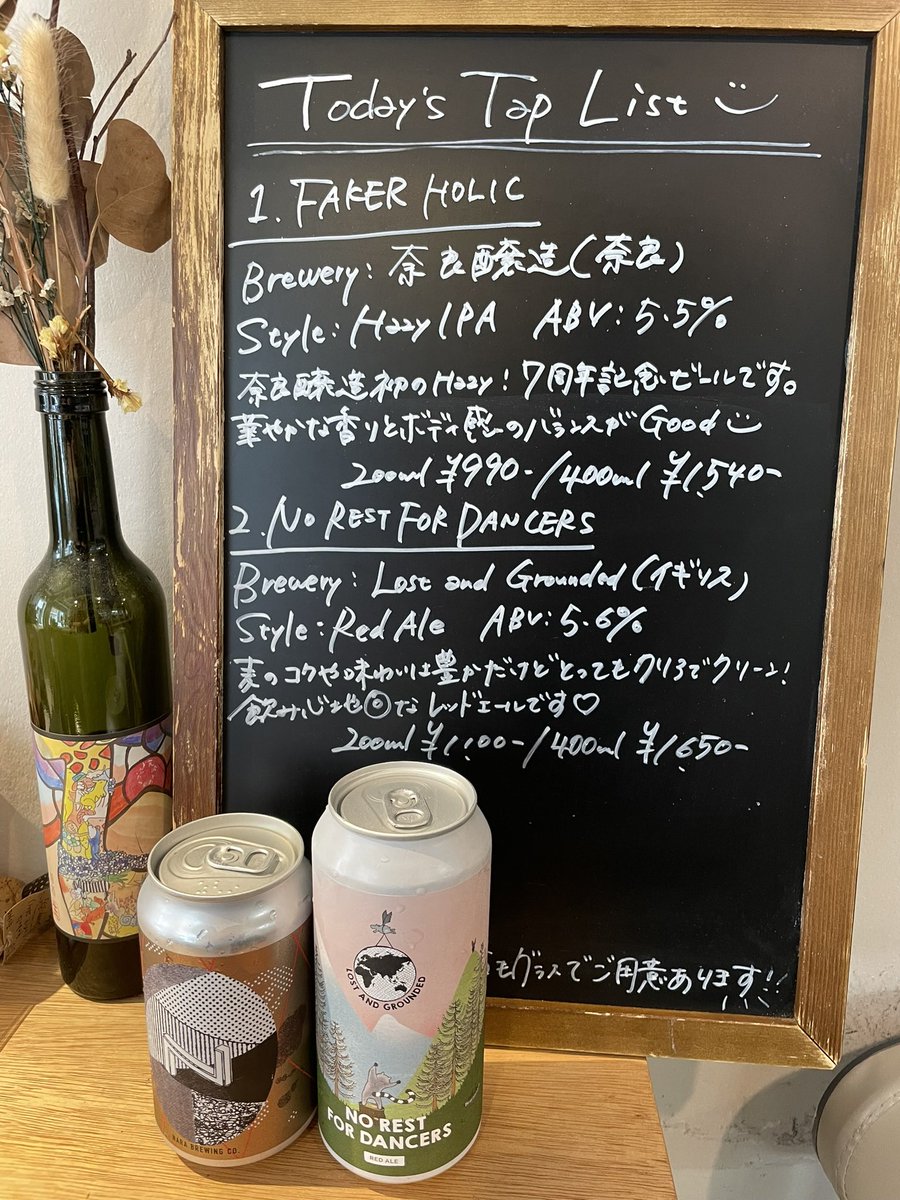 Today's Tap List
1. FAKER HOLIC
Brewery: 奈良醸造(奈良)
Style: Hazy IPA ABV: 5.5%
奈良醸造初のHazy! 7周年記念ビールです。
華やかな香りとボディ感のバランスがGood
200ml ¥990-/400ml ¥1,540-
2. NO REST FOR DANCERS
Brewery: Lost and Grounded (イギリス)
Style: Red Ale ABV: 5.6%
麦のコクや味わいは豊かだけどとってもクリアでクリーン!
飲み心地◎なレッドエールです♡
200ml ¥1,100-/400ml ¥1,650-
もグラスでご用意あります!!
LOST AND GROUNDED
NO REST
FOR DANCERS
RED ALE
NARA BREWING CO.